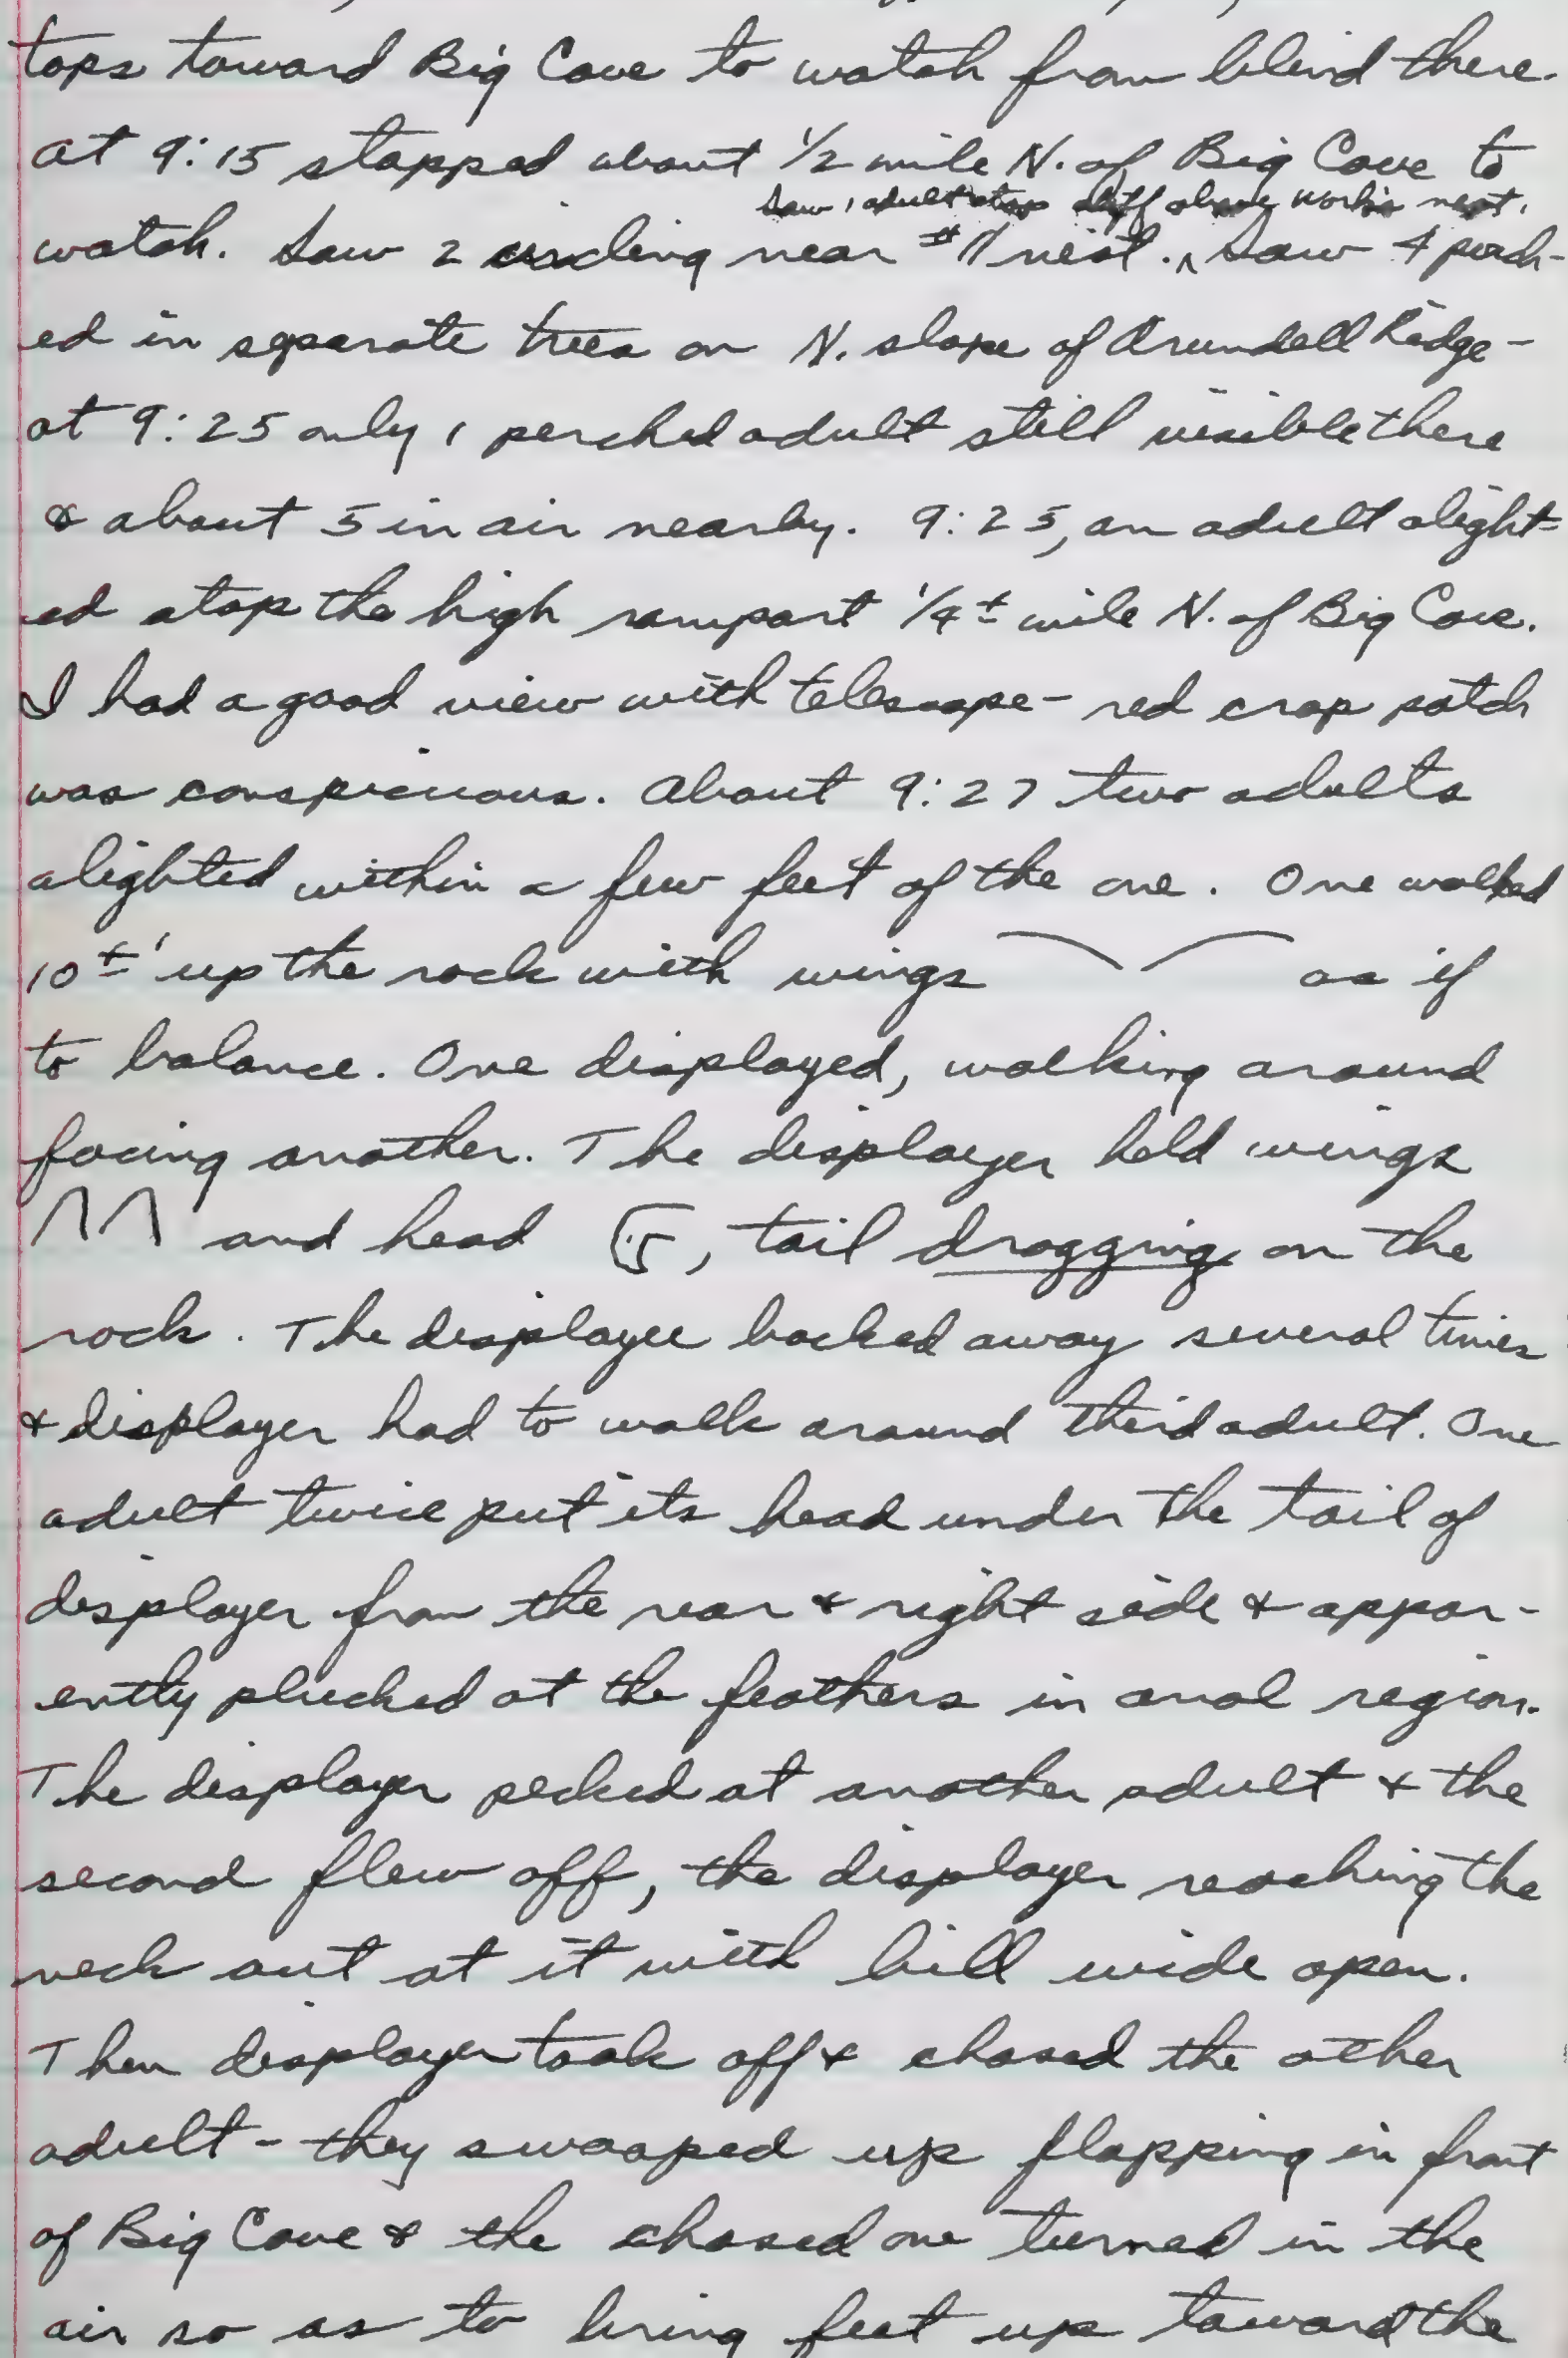 tops toward Big Cove to watch from blind there.
At 9:15 stopped about 1/2 mile N. of Big Cove to
saw 1 adult atop cliff above work's nest.
watch. Saw 2 circling near #11 nest. ^ Saw 4 perch-
ed in separate trees on N. slope of Arundell Ridge -
at 9:25 only 1 perched adult still visible there
& about 5 in air nearby. 9:25, an adult alight-
ed atop the high rampart 1/4± mile N. of Big Cove.
I had a good view with telescope - red crop patch
was conspicuous. About 9:27 two adults
alighted within a few feet of the one. One walked
10±' up the rock with wings as if
to balance. One displayed, walking around
facing another. The displayer held wings
and head , tail dragging on the
rock. The displayee backed away several times
& displayer had to walk around third adult. One
adult twice put its head under the tail of
displayer from the rear & right side & appar-
ently plucked at the feathers in anal region.
The displayer pecked at another adult & the
second flew off, the displayer reaching the
neck out at it with bill wide open.
Then displayer took off & chased the other
adult - they swooped up flapping in front
of Big Cove & the chased one turned in the
air so as to bring feet up toward the